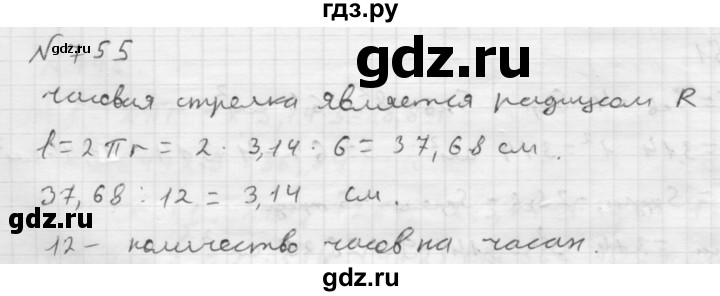 гдз.ру
№ 755
gdz.ru
gdz.ru
часовая стрелка является радиусом R
l = 2πr = 2 · 3,14 : 6 = 37,68 см.
gdz.ru
gdz.ru
37,68 : 12 = 3,14 см.
gdz.ru
gdz.ru
12 – количество часов на часах.
gdz.ru